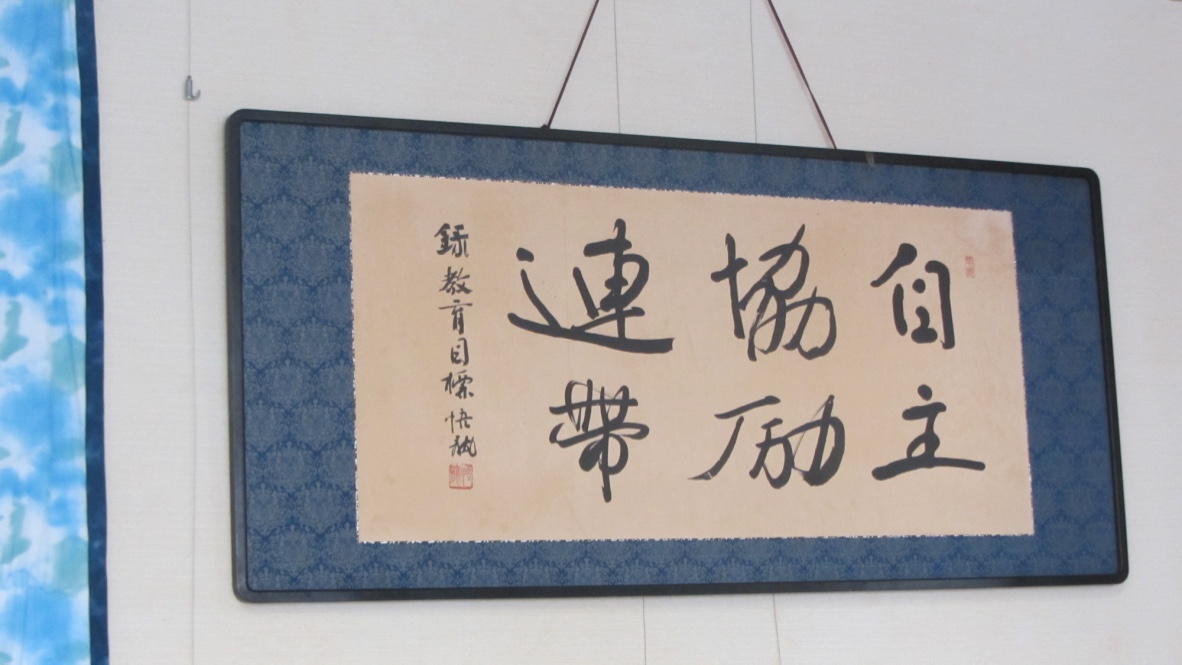 自主
協励
連帯
録教育目標